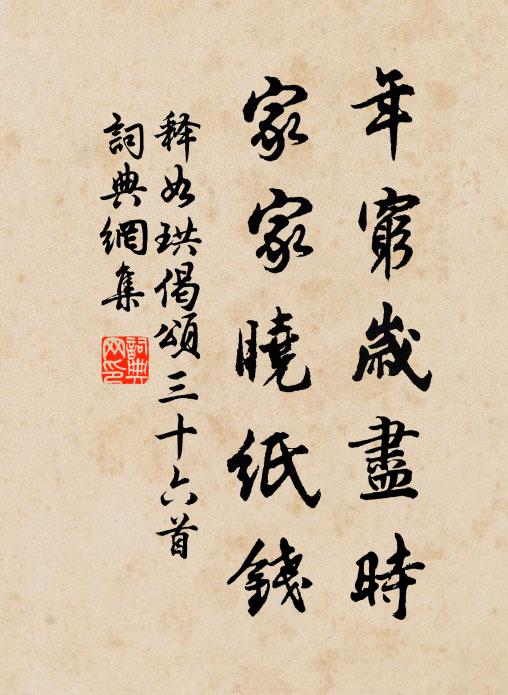 年窮歲盡時
家家曉紙錢
释如珙偈頌三十六首
詞典網集
詞典網印